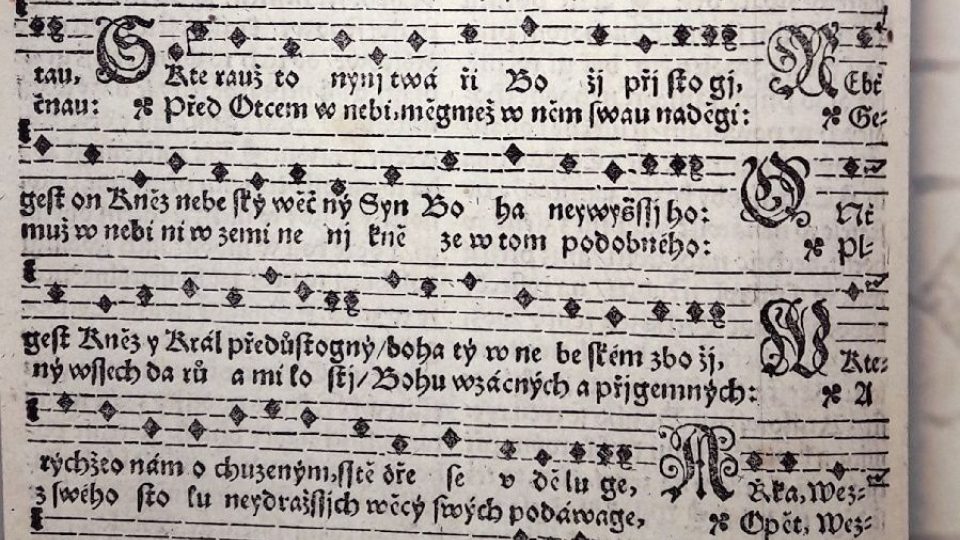 tau, S Kte rauž to nynj twá ři Bo žj přj sto gj, N Ebť
čnau: Před Otcem w nebi, měgmež w něm swau naděgi: Ge-
gest on Kněz nebe ský wěč ný Syn Bo ha neywyššj ho: Nť
muž w nebi ni w zemi ne nj kně ze w tom podobného: Pl-
gest Kněz y Král předůstogný/ boha tý w ne be ském zbo žj, W Kte-
ný wssech da rů a mi lo stj/ Bohu wzácných a přjgemných: A
rýchžto nám o chuzeným, sstě dře se v dě lu ge, A Řka, Wez-
z swého sto lu neydražssjch wěcý swých podáwage, Opět, Wez-